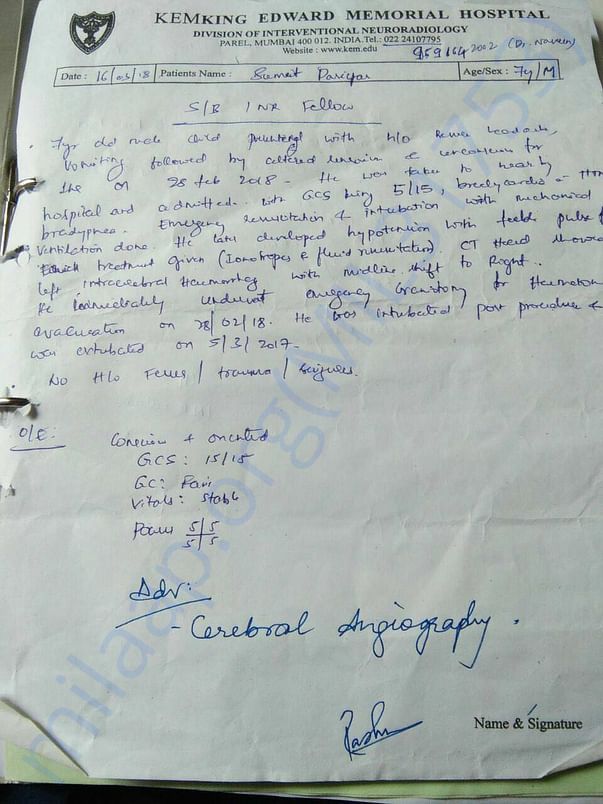 KEMKING EDWARD MEMORIAL HOSPITAL
DIVISION OF INTERVENTIONAL NEURORADIOLOGY
PAREL, MUMBAI 400 012. INDIA.Tel.: 022 24107795
Website : www.kem.edu
(Dr. Naveen)
Date : 16/03/18 Patients Name : Sumeet Pariyar Age/Sex : 7y/M
S/B INR Fellow
7yr old male child presenting with h/o severe headache,
Vomiting followed by altered sensorium & unconscious for
1hr on 28 feb 2018 - He was taken to nearby
hospital and admitted. with GCS being 5/15, bradycardia
bradypnea. Emergency resuscitation & intubation with mechanical
Ventilation done. He later developed hypotension with feeble pulse f
treatment given (Ionotropes & fluid resuscitation). CT Head showed
left intracerebral Haemorrhage with midline shift to Right.
He immediately underwent emergency craniotomy for Haematoma
evacuation on 28/02/18. He was intubated post procedure &
was extubated on 5/3/2017.
No H/o Fever / trauma / seizures.
O/E: Conscious & oriented
GCS: 15/15
GC: Fair
Vitals: Stable
Power 5/5
5/5
Adv:
- Cerebral Angiography.
Name & Signature
milaap.org